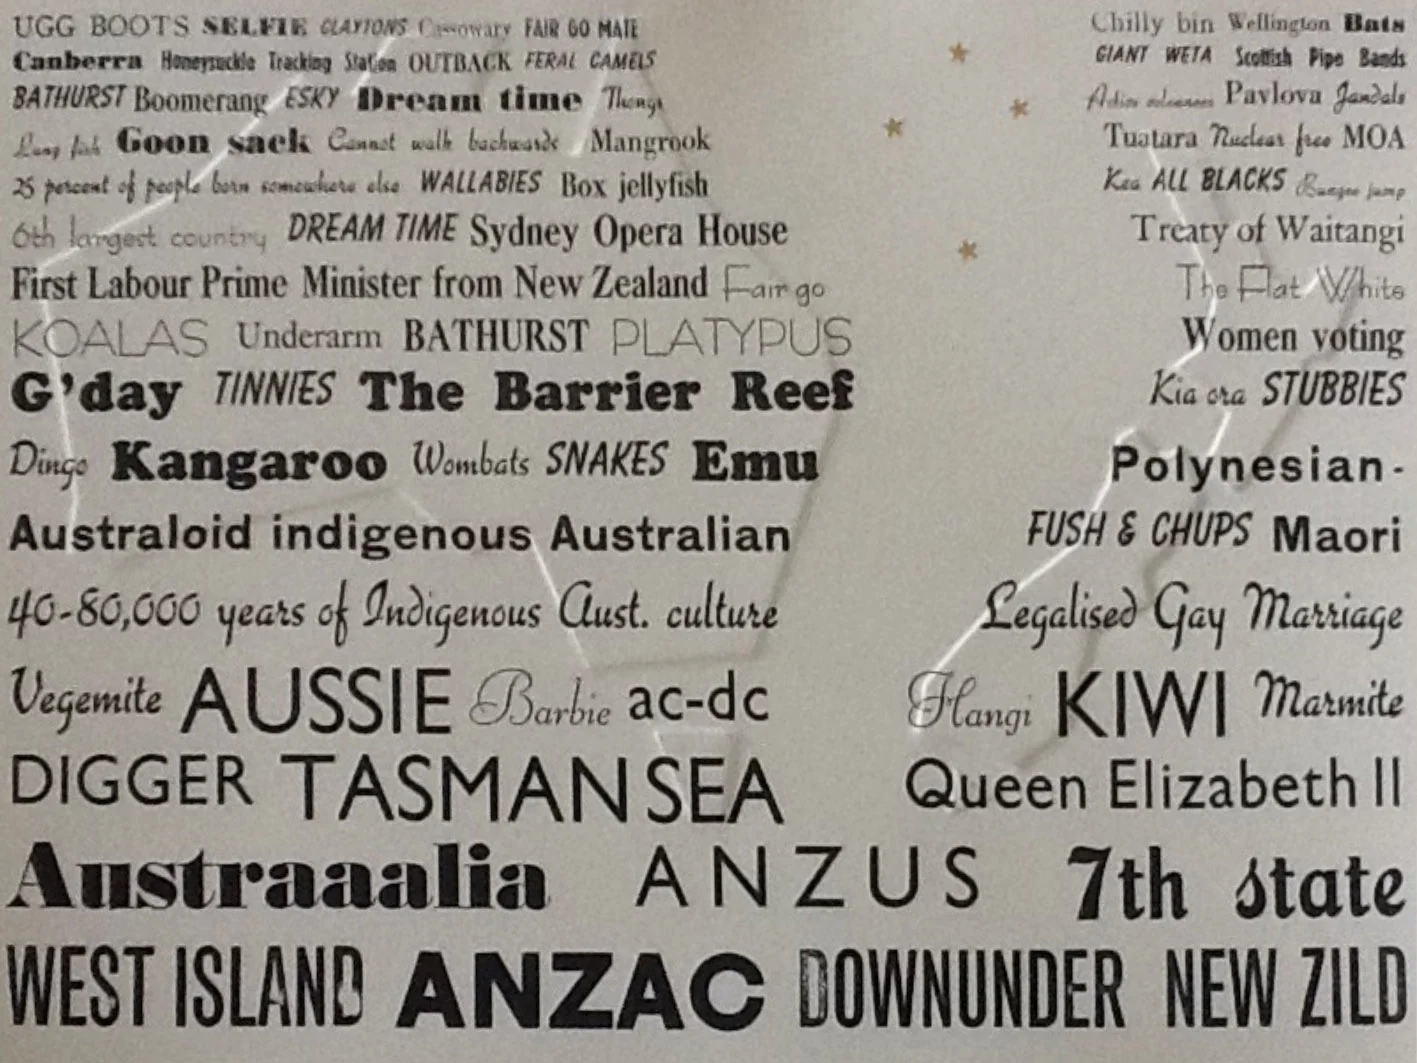 UGG BOOTS SELFIE CLAYTONS Cassowary FAIR GO MATE
Canberra Honeysuckle Tracking Station OUTBACK FERAL CAMELS
BATHURST Boomerang ESKY Dream time Thongs
Lung fish Goon sack Cannot walk backwards Mangrook
25 percent of people born somewhere else WALLABIES Box jellyfish
6th largest country DREAM TIME Sydney Opera House
First Labour Prime Minister from New Zealand Fair go
KOALAS Underarm BATHURST PLATYPUS
G'day TINNIES The Barrier Reef
Dingo Kangaroo Wombats SNAKES Emu
Australoid indigenous Australian
40-80,000 years of Indigenous Aust. culture
Vegemite AUSSIE Barbie ac-dc
DIGGER TASMAN SEA
Chilly bin Wellington Bats
GIANT WETA Scottish Pipe Bands
Active volcanoes Pavlova Jandals
Tuatara Nuclear free MOA
Kea ALL BLACKS Bungee jump
Treaty of Waitangi
The Flat White
Women voting
Kia ora STUBBIES
Polynesian-
FUSH & CHUPS Maori
Legalised Gay Marriage
Hangi KIWI Marmite
Queen Elizabeth II
Austraaalia ANZUS 7th state
WEST ISLAND ANZAC DOWNUNDER NEW ZILD